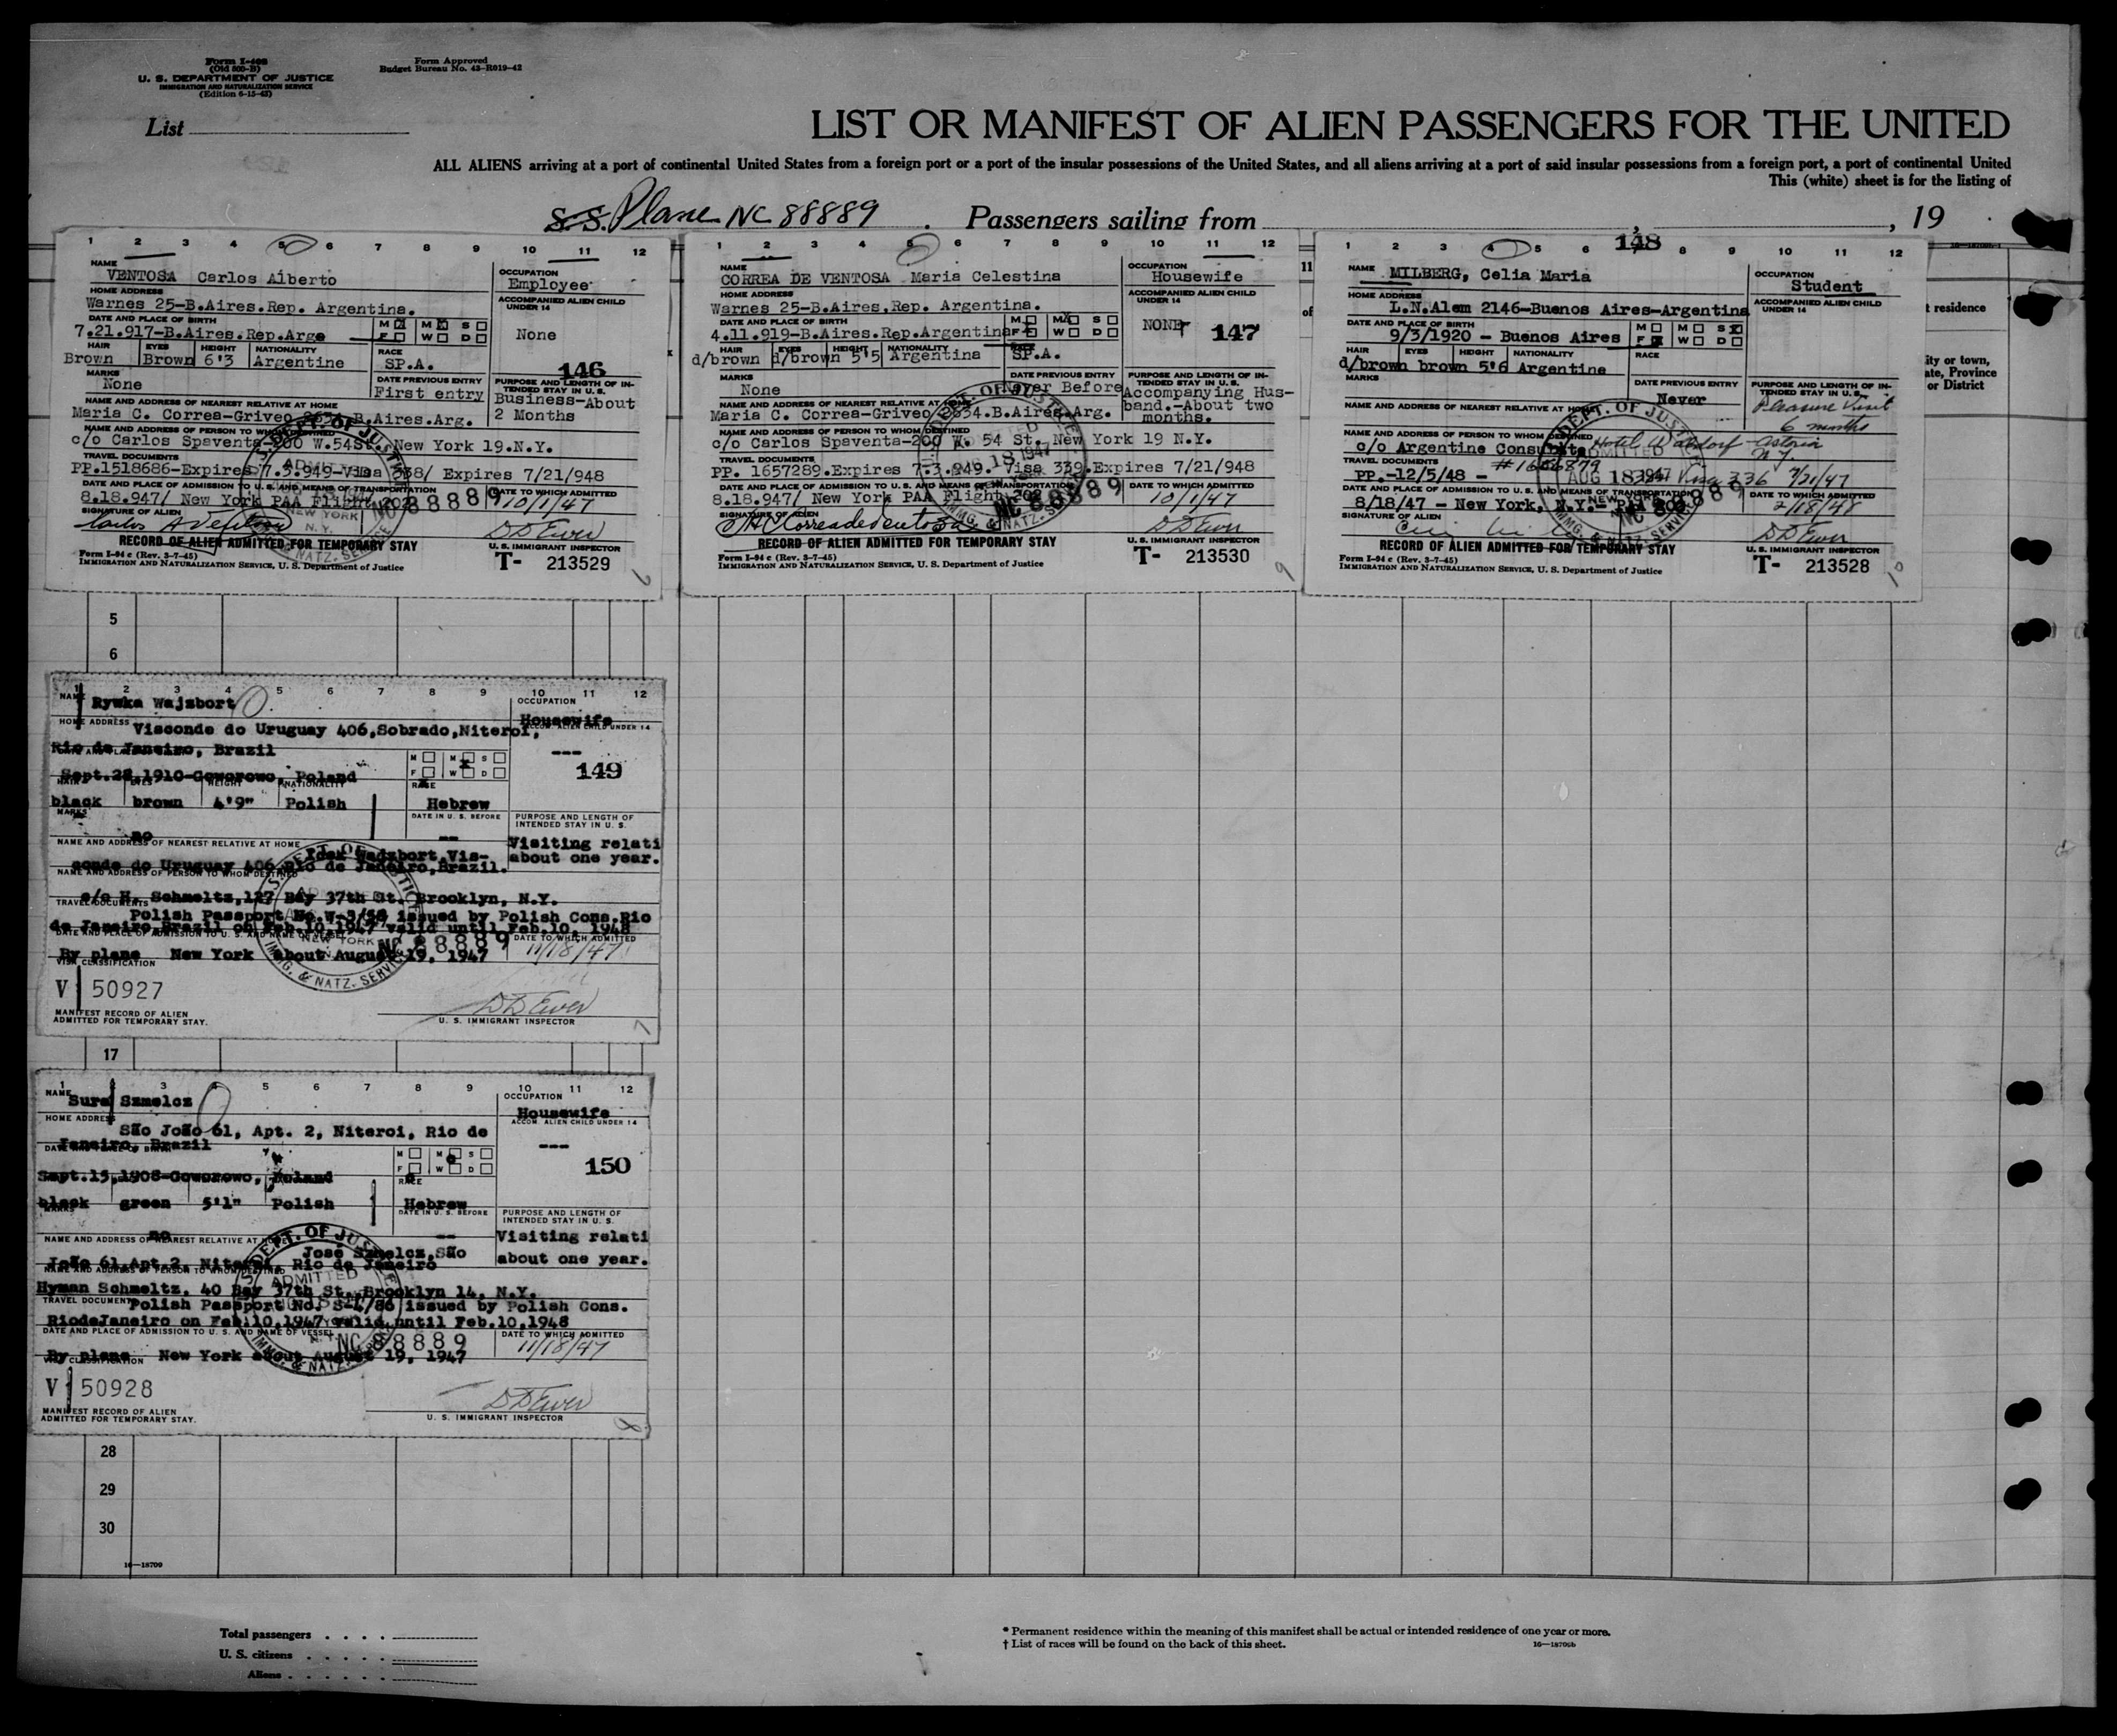 Form I-408
(Old 500-B)
U. S. DEPARTMENT OF JUSTICE
IMMIGRATION AND NATURALIZATION SERVICE
(Edition 6-15-43)
Form Approved
Budget Bureau No. 43-R019-42
List
LIST OR MANIFEST OF ALIEN PASSENGERS FOR THE UNITED
ALL ALIENS arriving at a port of continental United States from a foreign port or a port of the insular possessions of the United States, and all aliens arriving at a port of said insular possessions from a foreign port, a port of continental United
This (white) sheet is for the listing of
S.S. Plane NC 88889. Passengers sailing from , , 19
1 2 3 4 5 6 7 8 9 10 11 12
NAME
VENTOSA Carlos Alberto
OCCUPATION
Employee
HOME ADDRESS
Warnes 25-B.Aires.Rep. Argentina.
ACCOMPANIED ALIEN CHILD UNDER 14
None
DATE AND PLACE OF BIRTH
7.21.917-B.Aires.Rep.Arge
M M S
F W D
HAIR EYES HEIGHT NATIONALITY RACE
Brown Brown 6'3 Argentine SP.A.
146
MARKS
None
DATE PREVIOUS ENTRY
First entry
PURPOSE AND LENGTH OF INTENDED STAY IN U.S.
Business-About
2 Months
NAME AND ADDRESS OF NEAREST RELATIVE AT HOME
Maria C. Correa-Griveo 2634.B.Aires.Arg.
NAME AND ADDRESS OF PERSON TO WHOM DESTINED
c/o Carlos Spaventa-200 W.54St. New York 19.N.Y.
TRAVEL DOCUMENTS
PP.1518686-Expires 7.3.949-Visa 338/ Expires 7/21/948
DATE AND PLACE OF ADMISSION TO U. S. AND MEANS OF TRANSPORTATION
8.18.947/ New York PAA Flight 202
NC 88889
DATE TO WHICH ADMITTED
10/1/47
SIGNATURE OF ALIEN
DD Ewer
RECORD OF ALIEN ADMITTED FOR TEMPORARY STAY
U. S. IMMIGRANT INSPECTOR
Form I-94 c (Rev. 3-7-45)
IMMIGRATION AND NATURALIZATION SERVICE, U. S. Department of Justice
T- 213529
1 2 3 4 5 6 7 8 9 10 11 12
NAME
CORREA DE VENTOSA Maria Celestina
OCCUPATION
Housewife
HOME ADDRESS
Warnes 25-B.Aires.Rep. Argentina.
ACCOMPANIED ALIEN CHILD UNDER 14
NONE
147
DATE AND PLACE OF BIRTH
4.11.919-B.Aires.Rep.Argentina
M M S
F W D
HAIR EYES HEIGHT NATIONALITY RACE
d/brown d/brown 5'5 Argentina SP.A.
MARKS
None
DATE PREVIOUS ENTRY
Never Before
PURPOSE AND LENGTH OF INTENDED STAY IN U.S.
Accompanying Hus-
band.-About two
months.
NAME AND ADDRESS OF NEAREST RELATIVE AT HOME
Maria C. Correa-Griveo 2634.B.Aires.Arg.
NAME AND ADDRESS OF PERSON TO WHOM DESTINED
c/o Carlos Spaventa-200 W. 54 St. New York 19 N.Y.
TRAVEL DOCUMENTS
PP. 1657289.Expires 7.3.949. Visa 339.Expires 7/21/948
DATE AND PLACE OF ADMISSION TO U. S. AND MEANS OF TRANSPORTATION
8.18.947/ New York PAA Flight 202
NC 88889
DATE TO WHICH ADMITTED
10/1/47
SIGNATURE OF ALIEN
DD Ewer
RECORD OF ALIEN ADMITTED FOR TEMPORARY STAY
U. S. IMMIGRANT INSPECTOR
Form I-94 c (Rev. 3-7-45)
IMMIGRATION AND NATURALIZATION SERVICE, U. S. Department of Justice
T- 213530
9
1 2 3 4 5 6 148 8 9 10 11 12
NAME
MILBERG, Celia Maria
OCCUPATION
Student
HOME ADDRESS
L.N.Alem 2146-Buenos Aires-Argentina
ACCOMPANIED ALIEN CHILD UNDER 14
DATE AND PLACE OF BIRTH
9/3/1920 - Buenos Aires
M M S
F W D
HAIR EYES HEIGHT NATIONALITY RACE
d/brown brown 5'6 Argentine
MARKS
DATE PREVIOUS ENTRY
Never
PURPOSE AND LENGTH OF INTENDED STAY IN U.S.
Pleasure Visit
6 months
NAME AND ADDRESS OF NEAREST RELATIVE AT HOME
NAME AND ADDRESS OF PERSON TO WHOM DESTINED
c/o Argentine Consulate
Hotel Waldorf-Astoria
N.Y.
TRAVEL DOCUMENTS
PP.-12/5/48 -
AUG 18 1947
Visa 336 7/21/47
DATE AND PLACE OF ADMISSION TO U. S. AND MEANS OF TRANSPORTATION
8/18/47 - New York, N.Y.-
DATE TO WHICH ADMITTED
2/18/48
SIGNATURE OF ALIEN
DD Ewer
RECORD OF ALIEN ADMITTED FOR TEMPORARY STAY
U. S. IMMIGRANT INSPECTOR
Form I-94 c (Rev. 3-7-45)
IMMIGRATION AND NATURALIZATION SERVICE, U. S. Department of Justice
T- 213528
10
11
of
residence
ity or town,
ate, Province
or District
5
6
1 2 3 4 5 6 7 8 9 10 11 12
NAME
Rywka Wajzbort
OCCUPATION
Housewife
HOME ADDRESS
Visconde do Uruguay 406,Sobrado,Niteroi,
Rio de Janeiro, Brazil
ACCOM. ALIEN CHILD UNDER 14
---
149
Sept.28,1910-Goworowo, Poland
M M S
F W D
HAIR EYES HEIGHT NATIONALITY RACE
black brown 4'9" Polish Hebrew
MARKS
no
DATE IN U. S. BEFORE
--
PURPOSE AND LENGTH OF INTENDED STAY IN U. S.
Visiting relati
about one year.
NAME AND ADDRESS OF NEAREST RELATIVE AT HOME
Icek Wajzbort,Vis-
conde do Uruguay 406,Rio de Janeiro,Brazil.
NAME AND ADDRESS OF PERSON TO WHOM DESTINED
c/o H. Schmeltz,127 Bay 37th St. Brooklyn, N.Y.
TRAVEL DOCUMENTS
Polish Passport issued by Polish Cons.Rio
de Janeiro,Brazil on Feb.10,1947 valid until Feb.10, 1948
DATE AND PLACE OF ADMISSION TO U. S. AND NAME OF VESSEL
NC 88889
DATE TO WHICH ADMITTED
11/18/47
By plane New York about August 19, 1947
VISA CLASSIFICATION
V 50927
DD Ewer
MANIFEST RECORD OF ALIEN
ADMITTED FOR TEMPORARY STAY.
U. S. IMMIGRANT INSPECTOR
7
17
1 3 4 5 6 7 8 9 10 11 12
NAME
Sura Szmelcz
OCCUPATION
Housewife
HOME ADDRESS
São João 61, Apt. 2, Niteroi, Rio de
Janeiro, Brazil
ACCOM. ALIEN CHILD UNDER 14
---
150
DATE AND PLACE OF BIRTH
Sept.15,1908-Goworowo, Poland
M M S
F W D
RACE
black green 5'1" Polish Hebrew
MARKS
no
DATE IN U. S. BEFORE
--
PURPOSE AND LENGTH OF INTENDED STAY IN U. S.
Visiting relati
about one year.
NAME AND ADDRESS OF NEAREST RELATIVE AT HOME
José Szmelcz,São
João 61,Apt.2, Niteroi, Rio de Janeiro
NAME AND ADDRESS OF PERSON TO WHOM DESTINED
Hyman Schmeltz, 40 Bay 37th St. Brooklyn 14, N.Y.
TRAVEL DOCUMENTS
Polish Passport No. S-4/86 issued by Polish Cons.
RiodeJaneiro on Feb.10,1947 valid until Feb.10,1948
DATE AND PLACE OF ADMISSION TO U. S. AND NAME OF VESSEL
NC 88889
DATE TO WHICH ADMITTED
11/18/47
By plane New York about August 19, 1947
VISA CLASSIFICATION
V 50928
DD Ewer
MANIFEST RECORD OF ALIEN
ADMITTED FOR TEMPORARY STAY.
U. S. IMMIGRANT INSPECTOR
8
28
29
30
16—18709
Total passengers
U. S. citizens
Aliens
* Permanent residence within the meaning of this manifest shall be actual or intended residence of one year or more.
† List of races will be found on the back of this sheet.
16—18709b